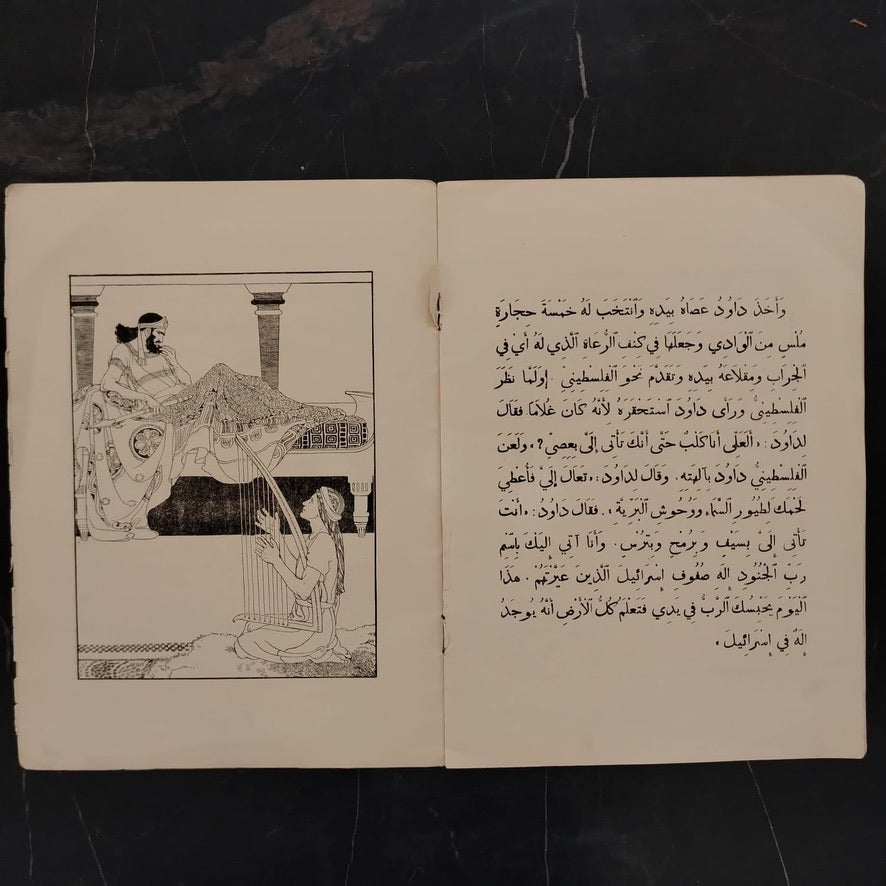 وَأَخَذَ دَاوُدُ عَصَاهُ بِيَدِهِ وَٱنْتَخَبَ لَهُ خَمْسَةَ حِجَارَةٍ
مُلْسٍ مِنَ ٱلْوَادِي وَجَعَلَهَا فِي كِنْفِ ٱلرُّعَاةِ ٱلَّذِي لَهُ أَيْ فِي
ٱلْجِرَابِ وَمِقْلَاعَهُ بِيَدِهِ وَتَقَدَّمَ نَحْوَ ٱلْفِلِسْطِينِيِّ. وَلَمَّا نَظَرَ
ٱلْفِلِسْطِينِيُّ وَرَأَى دَاوُدَ ٱسْتَحْقَرَهُ لِأَنَّهُ كَانَ غُلَامًا فَقَالَ
لِدَاوُدَ: «أَلَعَلِّي أَنَا كَلْبٌ حَتَّى أَنَّكَ تَأْتِي إِلَيَّ بِعِصِيٍّ؟» وَلَعَنَ
ٱلْفِلِسْطِينِيُّ دَاوُدَ بِآلِهَتِهِ. وَقَالَ لِدَاوُدَ: «تَعَالَ إِلَيَّ فَأُعْطِيَ
لَحْمَكَ لِطُيُورِ ٱلسَّمَاءِ وَوُحُوشِ ٱلْبَرِّيَّةِ». فَقَالَ دَاوُدُ: «أَنْتَ
تَأْتِي إِلَيَّ بِسَيْفٍ وَبِرُمْحٍ وَبِتُرْسٍ. وَأَنَا آتِي إِلَيْكَ بِٱسْمِ
رَبِّ ٱلْجُنُودِ إِلَهِ صُفُوفِ إِسْرَائِيلَ ٱلَّذِينَ عَيَّرْتَهُمْ. هَذَا
ٱلْيَوْمَ يَحْبِسُكَ ٱلرَّبُّ فِي يَدِي فَتَعْلَمُ كُلُّ ٱلْأَرْضِ أَنَّهُ يُوجَدُ
إِلَهٌ فِي إِسْرَائِيلَ»